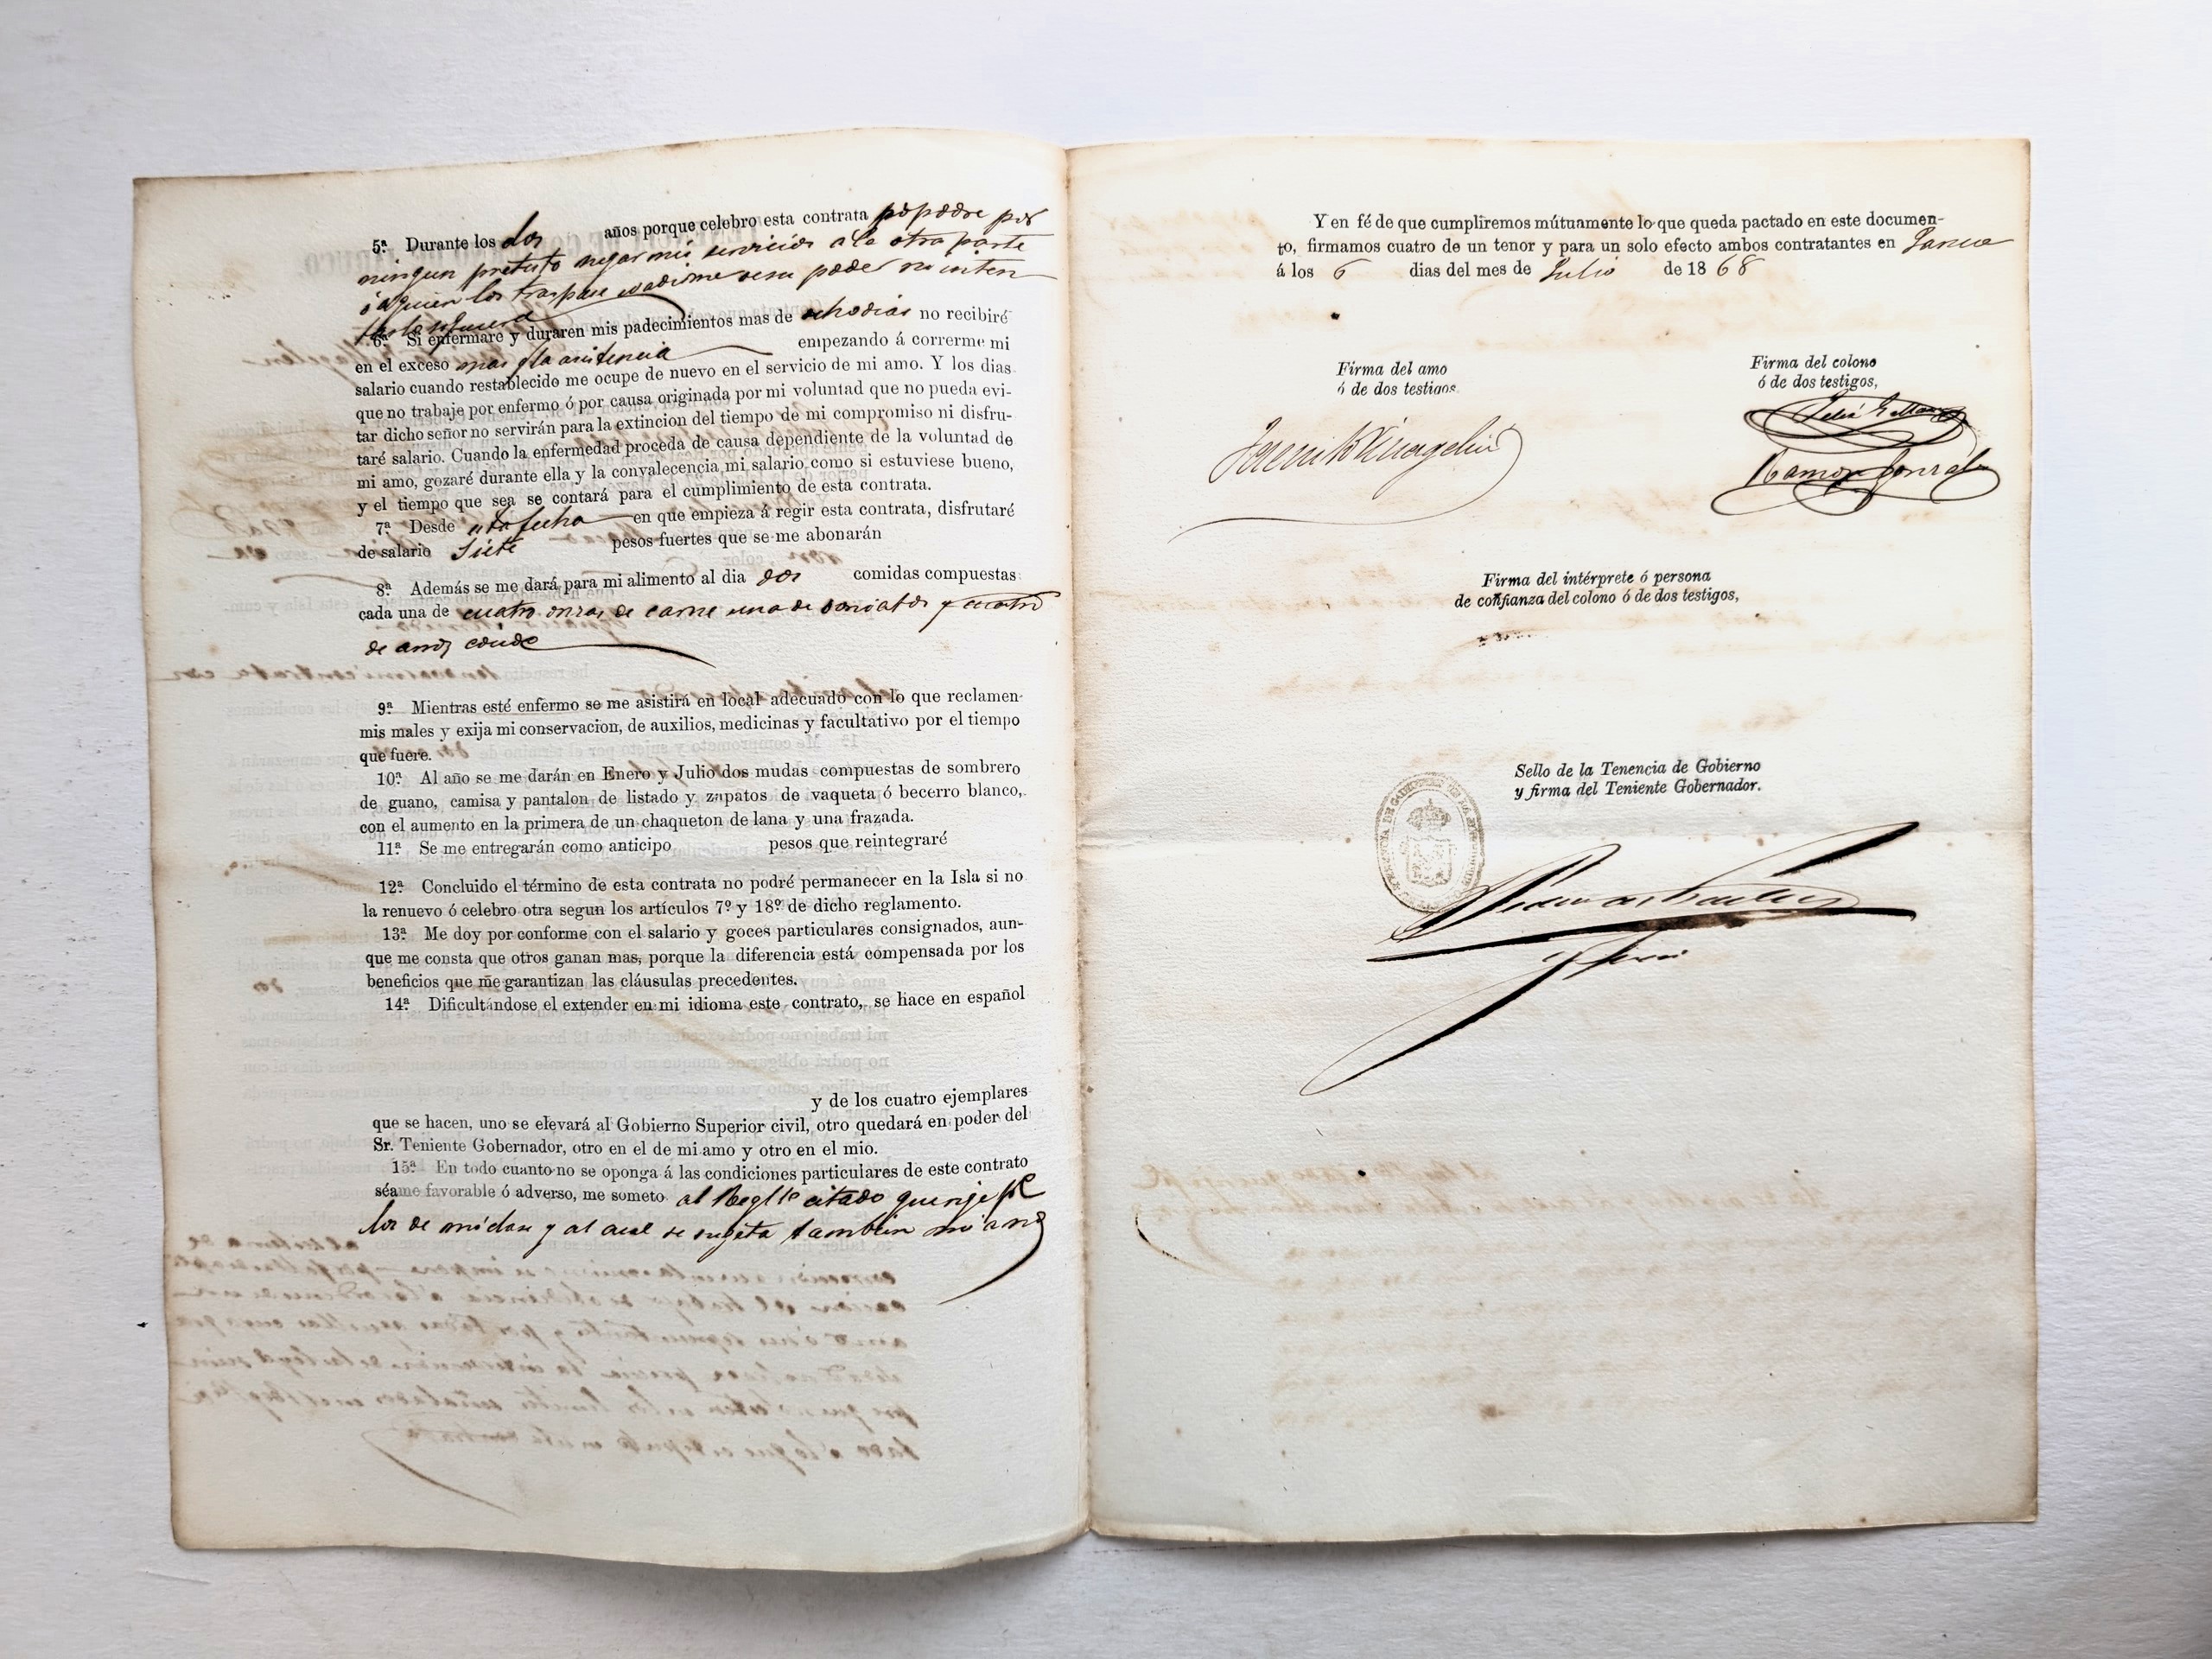 5ª Durante los dos años porque celebro esta contrata no podré por
ningun pretesto negar mis servicios á la otra parte
ó á quien los traspase evadirme de su poder ni inten
tarlo siquiera
6ª Si enfermare y duraren mis padecimientos mas de ocho dias no recibiré
en el exceso mas q la asistencia empezando á correrme mi
salario cuando restablecido me ocupe de nuevo en el servicio de mi amo. Y los dias
que no trabaje por enfermo ó por causa originada por mi voluntad que no pueda evi-
tar dicho señor no servirán para la extincion del tiempo de mi compromiso ni disfru-
taré salario. Cuando la enfermedad proceda de causa dependiente de la voluntad de
mi amo, gozaré durante ella y la convalecencia mi salario como si estuviese bueno,
y el tiempo que sea se contará para el cumplimiento de esta contrata.
7ª Desde esta fecha en que empieza á regir esta contrata, disfrutaré
de salario Siete pesos fuertes que se me abonarán
8ª Además se me dará para mi alimento al dia dos comidas compuestas
cada una de cuatro onzas de carne una de boniatos y cuatro
de arroz cocido
9ª Mientras esté enfermo se me asistirá en local adecuado con lo que reclamen
mis males y exija mi conservacion, de auxilios, medicinas y facultativo por el tiempo
que fuere.
10ª Al año se me darán en Enero y Julio dos mudas compuestas de sombrero
de guano, camisa y pantalon de listado y zapatos de vaqueta ó becerro blanco,
con el aumento en la primera de un chaqueton de lana y una frazada.
11ª Se me entregarán como anticipo pesos que reintegraré
12ª Concluido el término de esta contrata no podré permanecer en la Isla si no
la renuevo ó celebro otra segun los artículos 7º y 18º de dicho reglamento.
13ª Me doy por conforme con el salario y goces particulares consignados, aun-
que me consta que otros ganan mas, porque la diferencia está compensada por los
beneficios que me garantizan las cláusulas precedentes.
14ª Dificultándose el extender en mi idioma este contrato, se hace en español
y de los cuatro ejemplares
que se hacen, uno se elevará al Gobierno Superior civil, otro quedará en poder del
Sr. Teniente Gobernador, otro en el de mi amo y otro en el mio.
15ª En todo cuanto no se oponga á las condiciones particulares de este contrato
séame favorable ó adverso, me someto al Reglto citado que rige pª
los de mi clase y al cual se sujeta tambien mi amo
Y en fé de que cumpliremos mútuamente lo que queda pactado en este documen-
to, firmamos cuatro de un tenor y para un solo efecto ambos contratantes en Jaruco
á los 6 dias del mes de Julio de 1868
Firma del amo
ó de dos testigos.
Firma del colono
ó de dos testigos,
Ramon Gonzalez
Firma del intérprete ó persona
de confianza del colono ó de dos testigos,
Sello de la Tenencia de Gobierno
y firma del Teniente Gobernador.